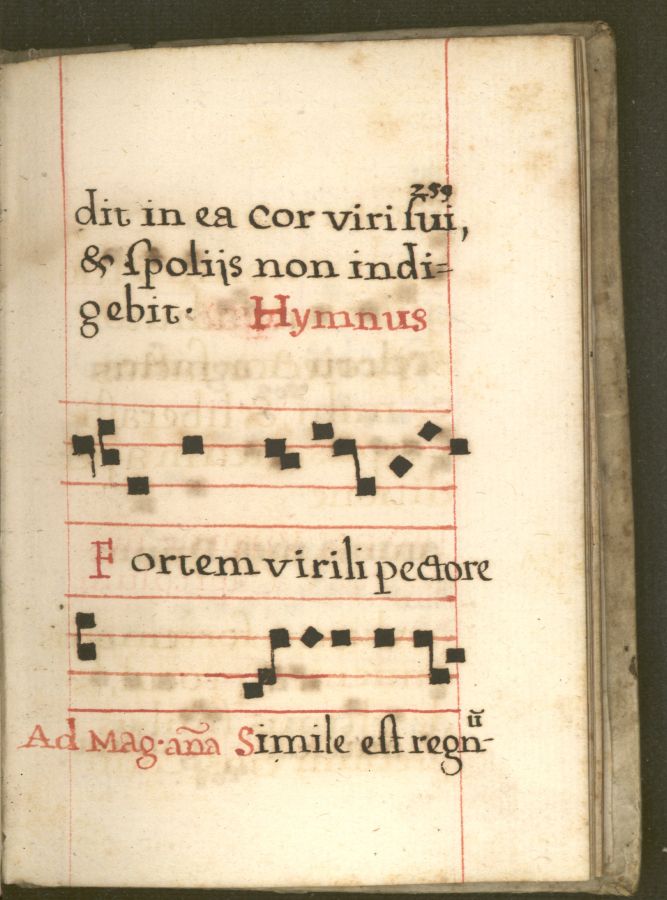 259
dit in ea cor viri ſui,
& ſpolijs non indi=
gebit· Hymnus
Fortem virili pectore
Ad Mag· aña Simile eſt regnũ-